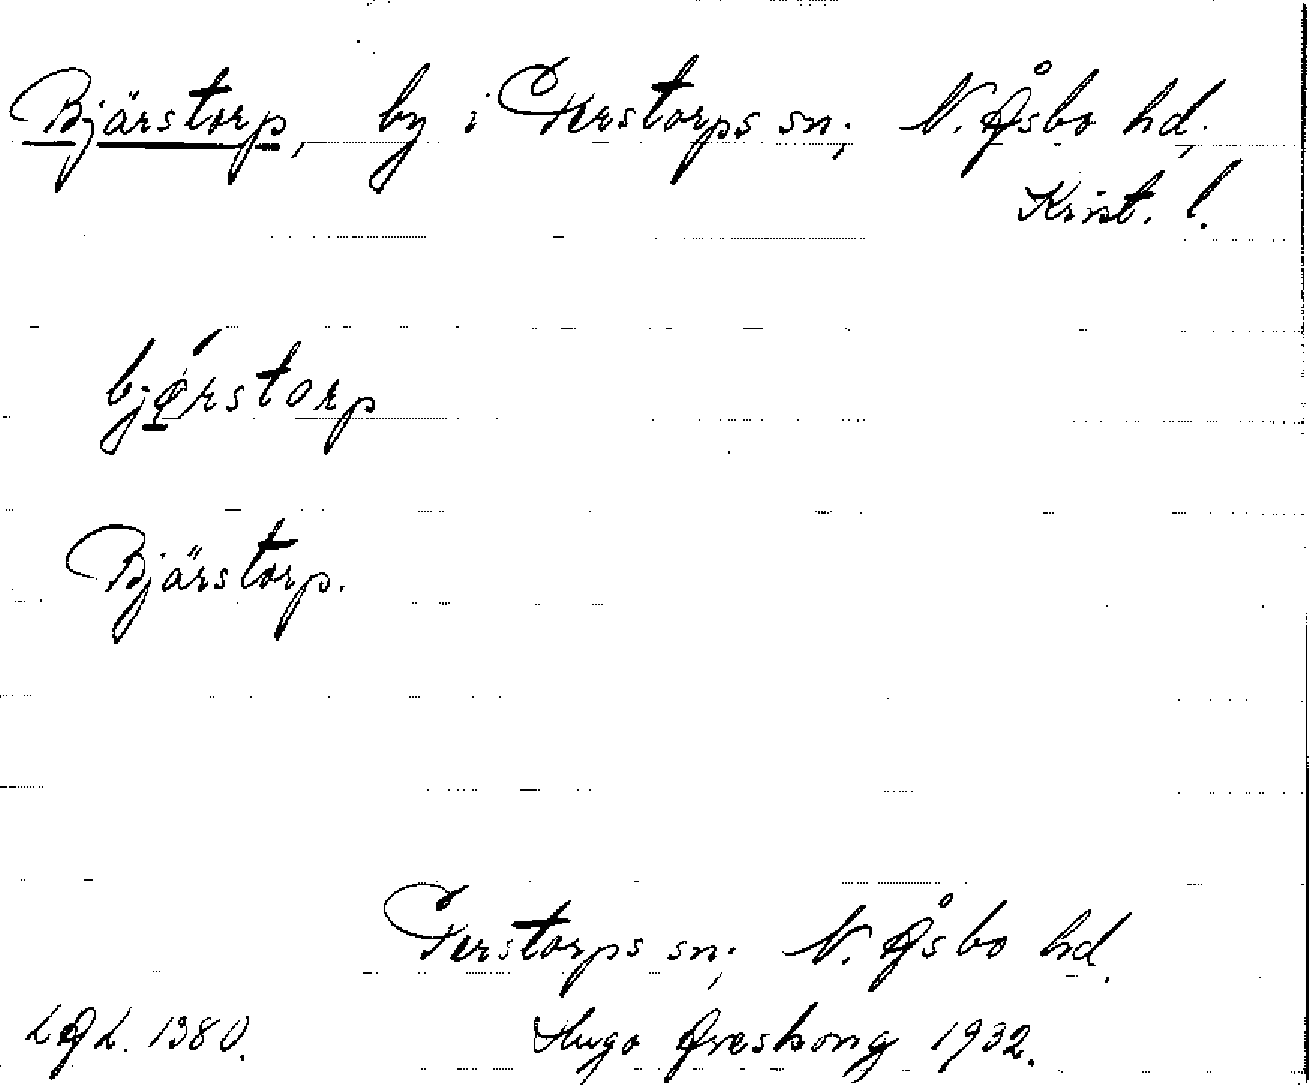 Bjärstorp, by i Perstorps sn; N. Åsbo hd;
Krist. l.
bjǫ́rstorp
Bjärstorp.
Perstorps sn; N. Åsbo hd.
LAL. 1380. Hugo Areskoug 1932.